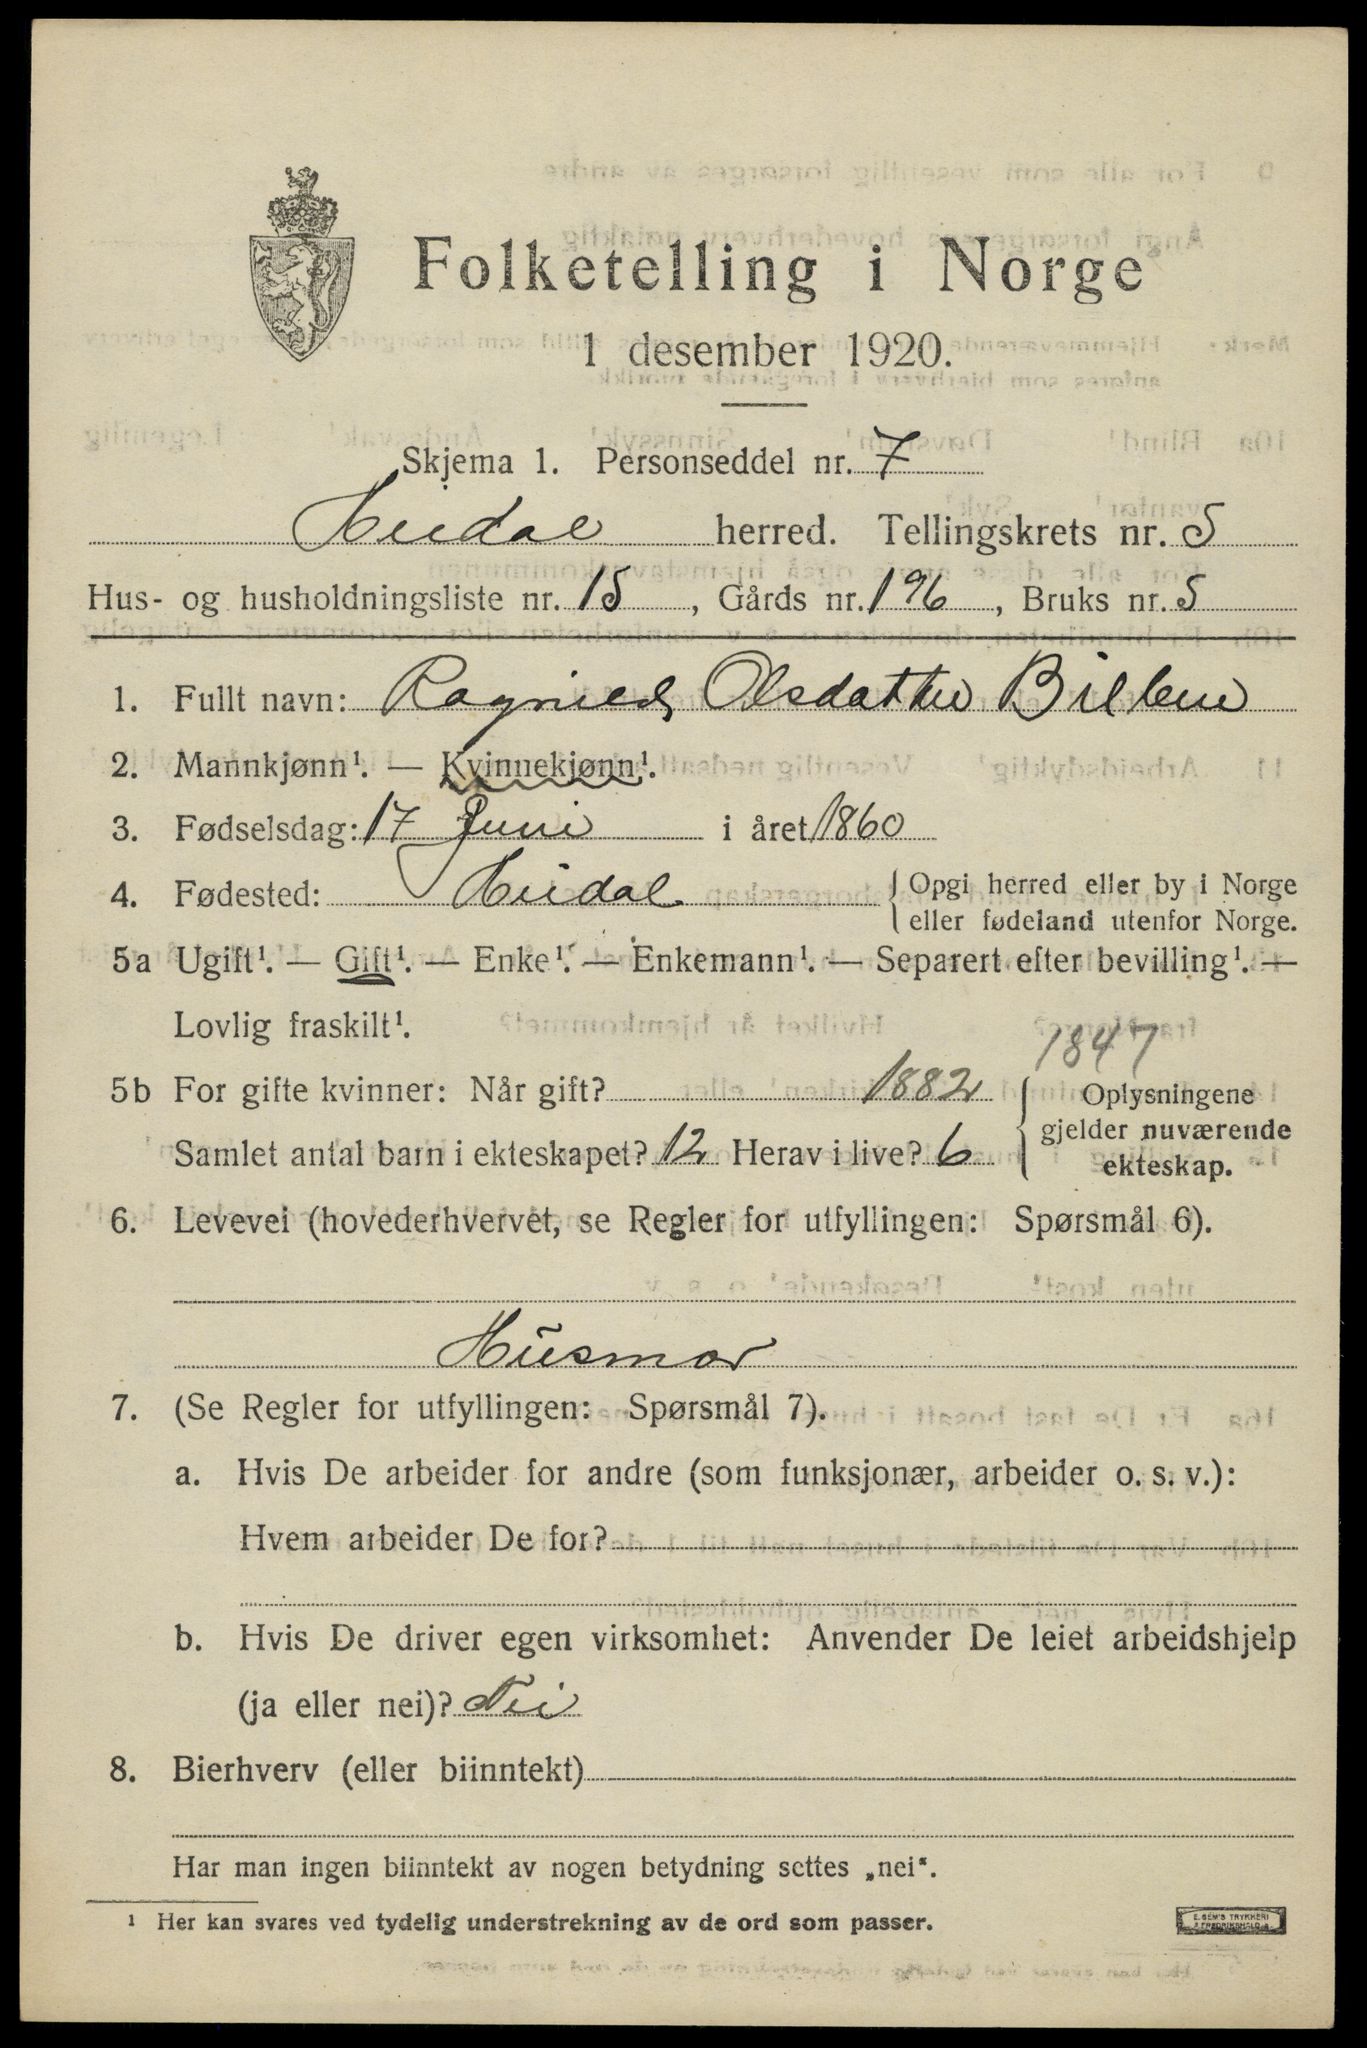 Folketelling i Norge
1 desember 1920.
Skjema 1. Personseddel nr. 7
Heidal herred. Tellingskrets nr. 5
Hus- og husholdningsliste nr. 15, Gårds nr. 196, Bruks nr. 5
1. Fullt navn: Ragnild Olsdatter
2. Mannkjønn¹. — Kvinnekjønn¹.
3. Fødselsdag: 17 Juni i året 1860
4. Fødested: Heidal {Opgi herred eller by i Norge
eller fødeland utenfor Norge.
5a Ugift¹. — Gift¹. — Enke¹. — Enkemann¹. — Separert efter bevilling¹. —
Lovlig fraskilt¹.
1847
5b For gifte kvinner: Når gift? 1882
Samlet antal barn i ekteskapet? 12 Herav i live? 6
Oplysningene
gjelder nuværende
ekteskap.
6. Levevei (hovederhvervet, se Regler for utfyllingen: Spørsmål 6).
Husmor
7. (Se Regler for utfyllingen: Spørsmål 7).
a. Hvis De arbeider for andre (som funksjonær, arbeider o. s. v.):
Hvem arbeider De for?
b. Hvis De driver egen virksomhet: Anvender De leiet arbeidshjelp
(ja eller nei)? Nei
8. Bierhverv (eller biinntekt)
Har man ingen biinntekt av nogen betydning settes „nei“.
¹ Her kan svares ved tydelig understrekning av de ord som passer.
E. SEM'S TRYKKERI
FREDRIKSHALD